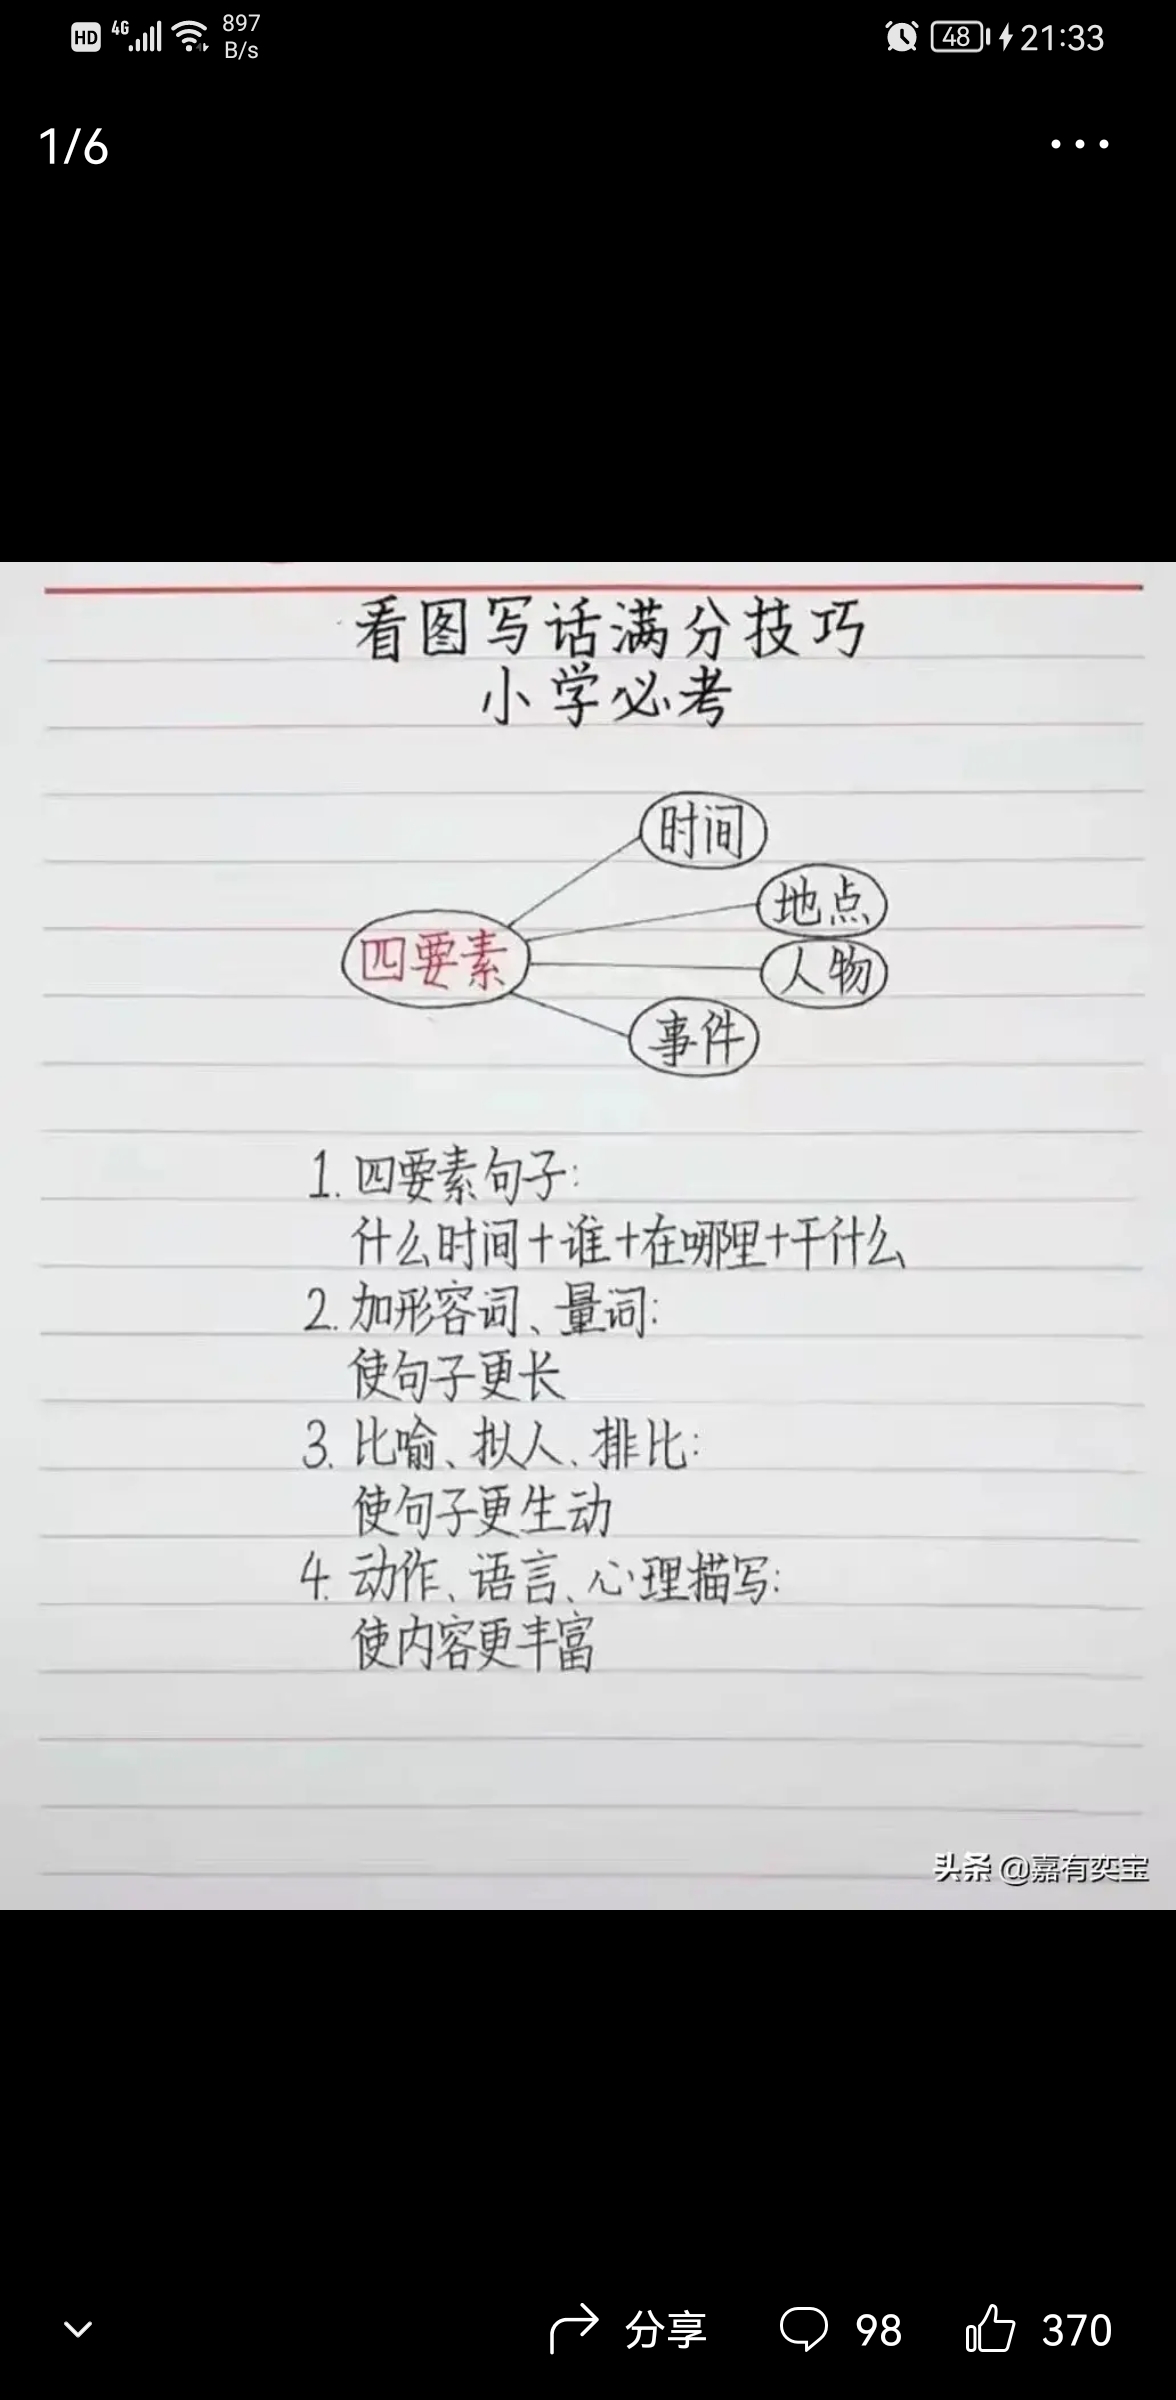 HD 4G 897 B/s 48 21:33
1/6
看图写话满分技巧
小学必考
时间
地点
四要素
人物
事件
1. 四要素句子:
什么时间+谁+在哪里+干什么
2. 加形容词、量词:
使句子更长
3. 比喻、拟人、排比:
使句子更生动
4. 动作、语言、心理描写:
使内容更丰富
头条 @嘉有奕宝
分享 98 370